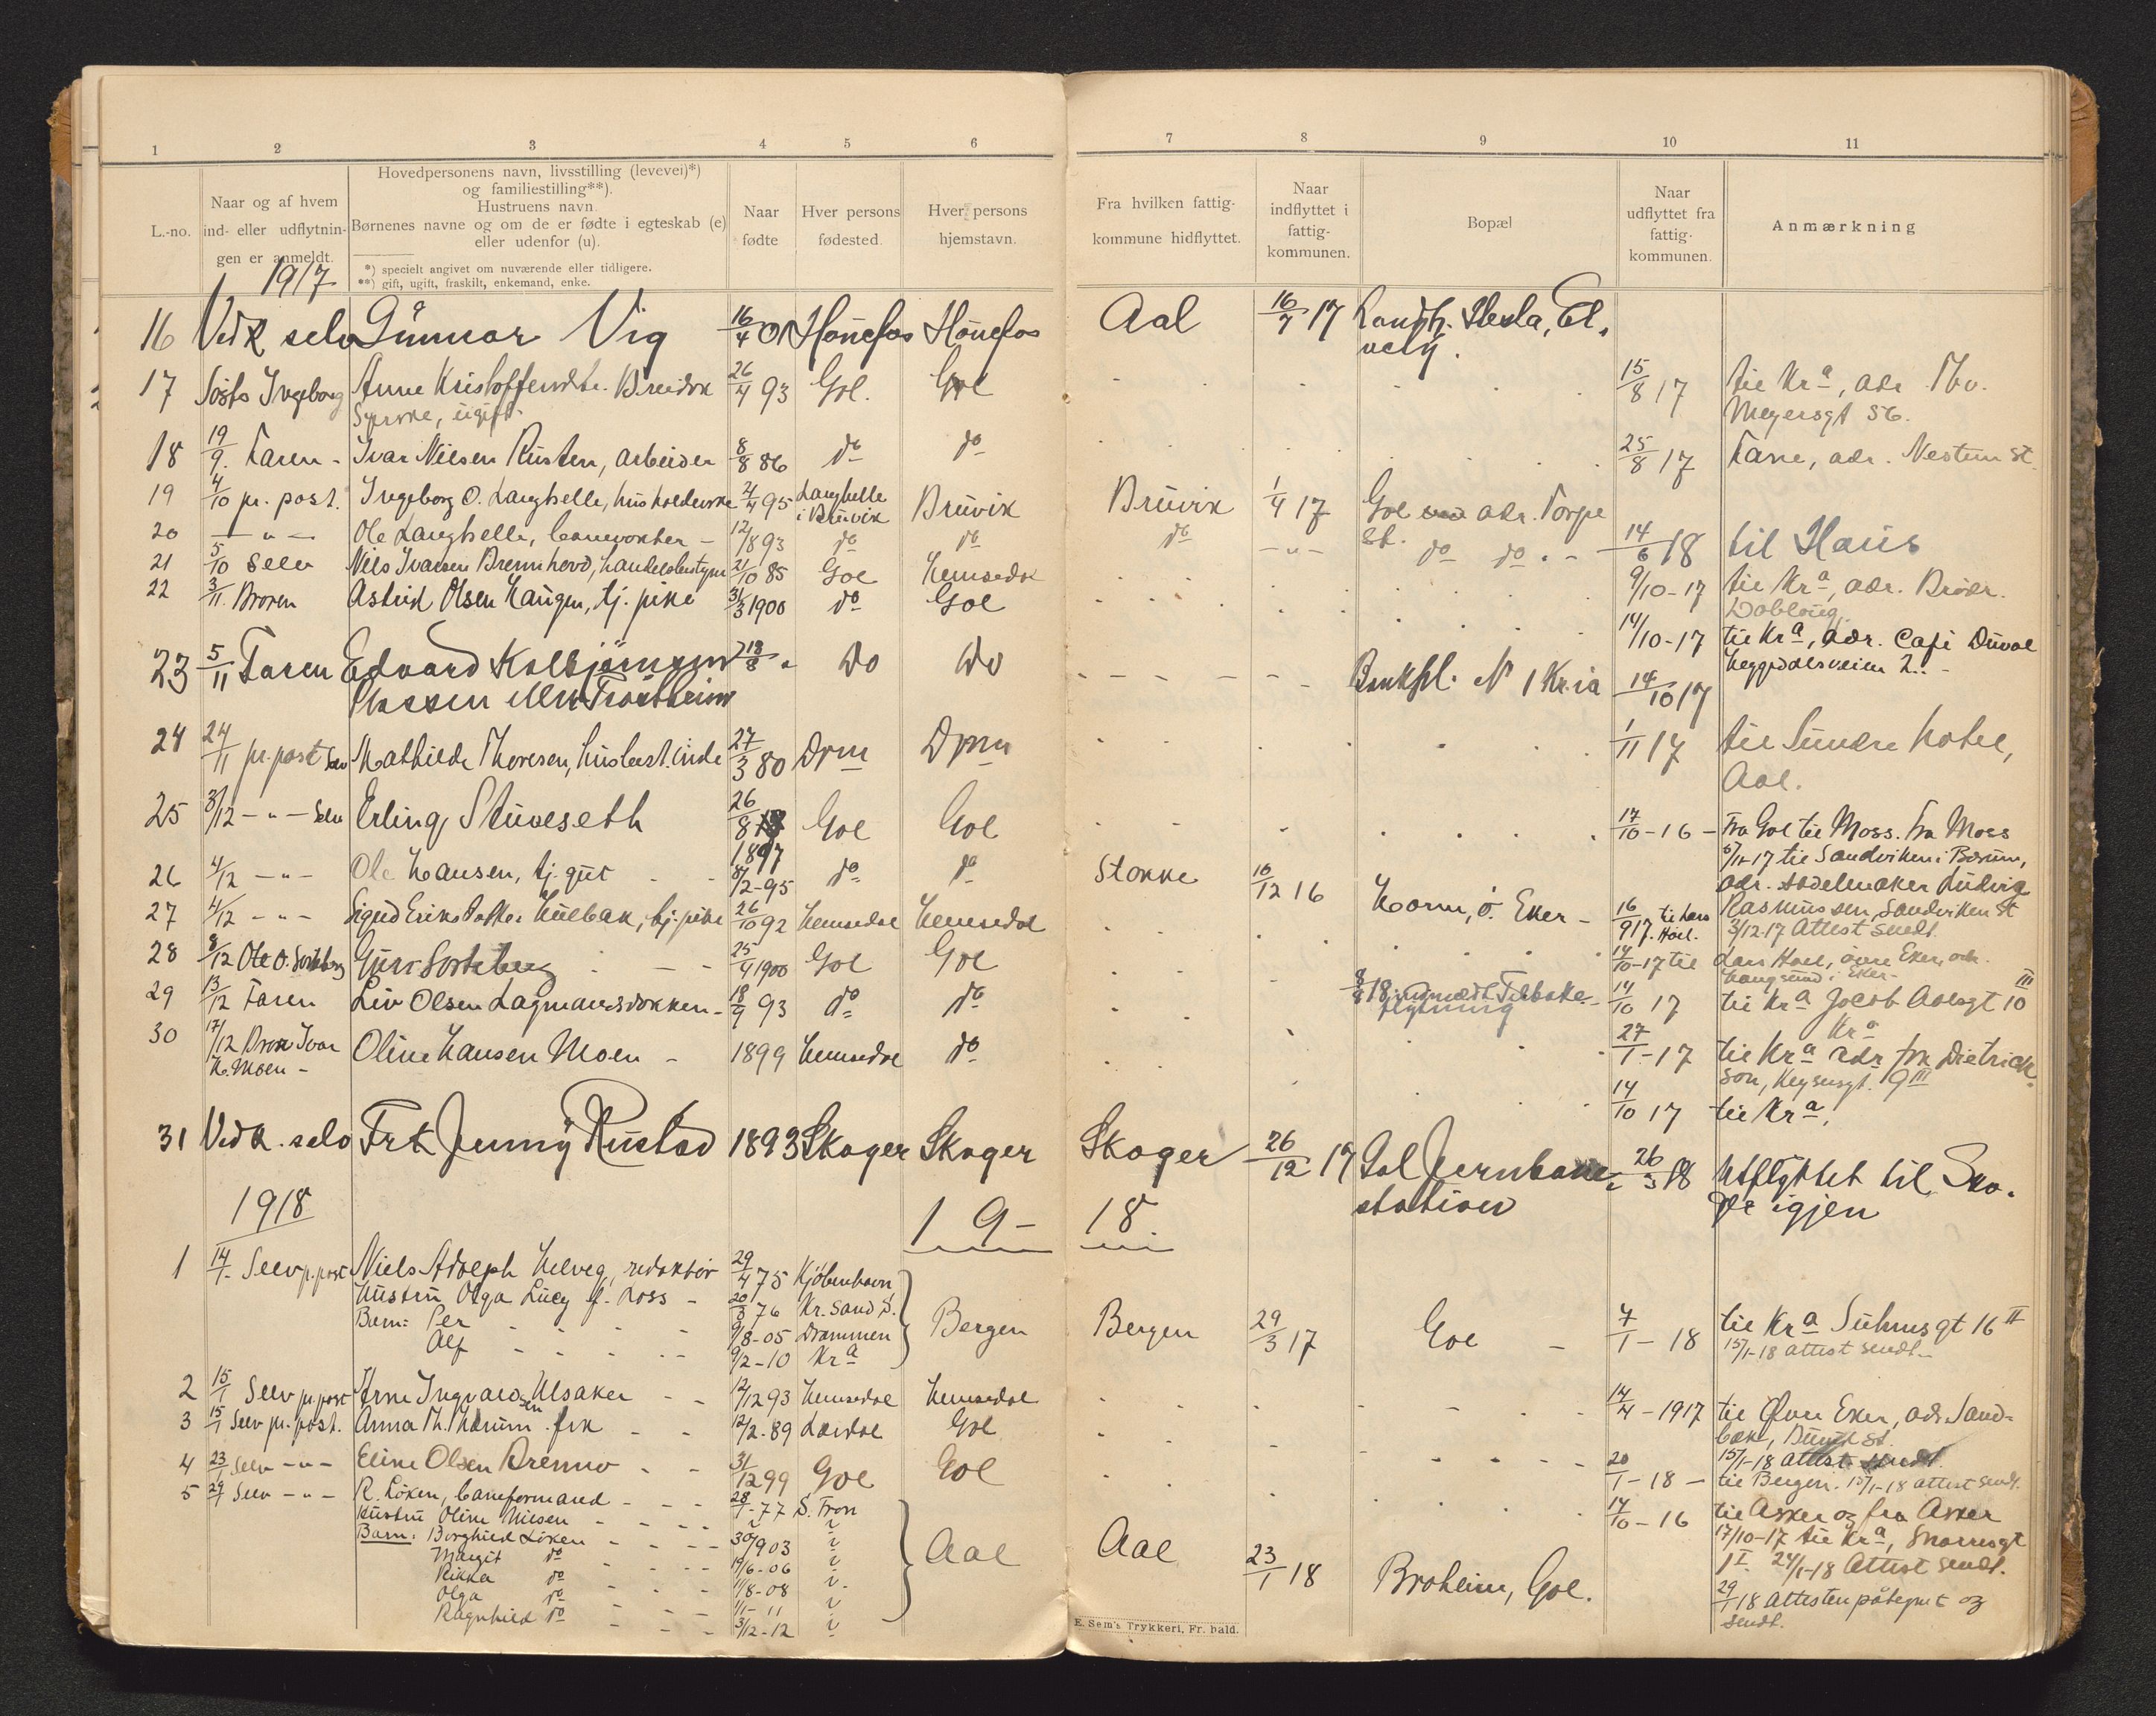 1 2 3 4 5 6 7 8 9 10 11
L.-no.
Naar og af hvem
ind- eller udflytnin-
gen er anmeldt.
Hovedpersonens navn, livsstilling (levevei)*)
og familiestilling**).
Hustruens navn.
Børnenes navne og om de er fødte i egteskab (e)
eller udenfor (u).
*) specielt angivet om nuværende eller tidligere.
**) gift, ugift, fraskilt, enkemand, enke.
Naar
fødte
Hver persons
fødested.
Hver persons
hjemstavn.
Fra hvilken fattig-
kommune hidflyttet.
Naar
indflyttet i
fattig-
kommunen.
Bopæl
Naar
udflyttet fra
fattig-
kommunen.
Anmærkning
1917
16 Vedk selv Gunnar Vig 16/4 01 Hønefos Hønefos Aal 16/7 17 Landh. Hesla, El.
17 Søst. Ingeborg Anne Kristoffersdtr. 26/4 93 Gol. Gol 15/8 17 til Kra, adr. Thv.
ugift Meyersgt 56.
18 19/9. Faren - Ivar Nilsen Rusten, arbeider 8/8 86 do do 25/8 17 Fane, adr. Nestun st.
19 4/10 pr. post. Ingeborg O. Langhelle, husholderske 2/4 95 Langhelle i Bruvik Bruvik Bruvik 1/4 17 Gol adr. Torpe
20 — " — Ole Langhelle, banevokter - 12/8 93 do do do - " - St. do do. - 14/6 18 til Haus
21 5/10 Selv Nils Ivarsen Brennhovd, handelsbestyrer 21/10 85 Gol Hemsedal 9/10-17 til Kra, adr. Brødr.
Dobloug.
22 3/11. Broren Astrid Olsen Haugen, tj. pike 31/3 1900 do Gol 14/10-17 til Kra, adr. Café Duval
Heggedalsveien 2. -
23 5/11 Faren Edvard Kolbjørnsen 8 Do Do Bankpl. No 1 Kr.ia 14/10 17
24 24/11 pr. post Selv Mathilde Thoresen, husbest.inde 27/3 80 Drm Drm 1/11 17 til Sundre hotel,
Aal.
25 3/12 - " - Selv Erling Stuveseth 26/8 1897 Gol Gol 17/10-16 - Fra Gol til Moss. Fra Moss
6/11-17 til Sandviken i Bærum,
adr. sadelmaker Ludvig
Rasmussen, Sandviken st
3/12-17 Attest sendt.
26 4/12 - " - Ole Hansen, tj. gut 8/12-95 do do Stokke 10/12 16 Horn, ö. Eker - 16/9 17. til Lars Hoel.
27 4/12 - " - Sigrid Eriksdatter Hulbak, tj. pike 26/10 92 Hemsedal Hemsedal 14/10-17 til Lars Hoel, övre Eker, adr.
i Eker -
28 8/12 Ole O. Sorteberg Guri Sorteberg 25/4 1900 Gol Gol 14/10 17 til Kra Jacob Aalsgt 10 III
Kra
29 13/12 Faren Liv Olsen Lagmandsdokken - 18/9 93 do do 8/8 18 Tilbake-
flytning 27/1-17 til Kra adr frk Dietrich-
son, Keysersgt. 9 III
30 17/12 Bror Ivar Oline Hansen Moen - 1899 Hemsedal do 14/10 17 til Kra.
H. Moen -
31 Vedk. selv Frk Jenny Rustad 1893 Skoger Skoger Skoger 26/12 17 Gol Jernbane-
station 26/3 18 Utflyttet til Sko-
ger igjen
1918 19- 18
1 14/1- Selv p. post Niels Adolph Helveg, redaktör 29/4 75 Kjøbenhavn
Hustru Olga Lucy f. Loss - 20/3 76 Kr.sand S.
Barn: Per - 9/8-05 Drammen Bergen Bergen 29/3 17 Gol - 7/1-18 til Kra Suhmsgt 16 II
Alf - 9/2-10 Kra 15/1-18 attest sendt -
2 15/1 Selv pr. post Arne Ingvaldsen Ulsaker - 12/12 93 Hemsedal Hemsedal 14/4-1917 til Øvre Eker, adr. Sand-
bæk,
15/1-18 attest sendt
3 15/1 Selv pr. post. Anna Th. Thorum frk - 12/2-89 Lærdal Gol 20/1-18 - til Bergen. 15/1-18 attest sendt.
4 23/1 Selv - " - Eline Olsen Bremmo - 31/12 99 Gol Gol 14/10-16 til Asker og fra Asker
17/10-17 til Kra, Snorresgt
1 I. 24/1-18 Attest sendt.
5 29/1 Selv - " - R. Löken, baneformand - 28/1-77 S. Fron
Hustru Oline Nilsen
Barn: Borghild Löken 30/9 03
Margit do 19/6-06 Aal Aal 23/1 18 Broheim, Gol.
Rikka do 11/8-08
Olga do 1/1-11
Ragnhild do 3/12-12
29/1 18 Attesten påtegnet og
sendt.
E. Sem's Trykkeri, Fr. hald.